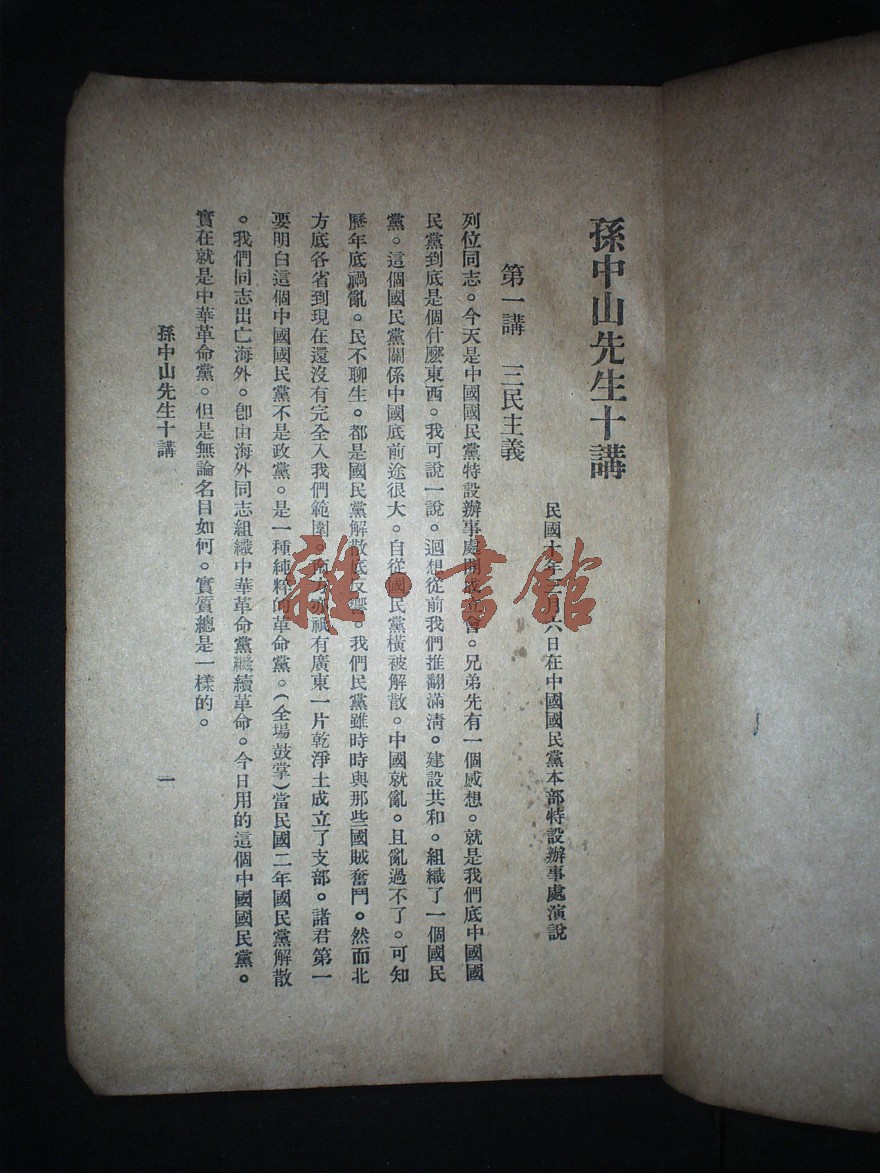 孫中山先生十講
民國十年 月六日在中國國民黨本部特設辦事處演說
第一講 三民主義
列位同志。今天是中國國民黨特設辦事處開成立會。兄弟先有一個感想。就是我們底中國國
民黨到底是個什麼東西。我可說一說。迴想從前我們推翻滿淸。建設共和。組織了一個國民
黨。這個國民黨關係中國底前途很大。自從國民黨橫被解散。中國就亂。且亂過不了。可知
歷年底禍亂。民不聊生。都是國民黨解散底反響。我們民黨雖時時與那些國賊奮鬥。然而北
方底各省到現在還沒有完全入我們範圍。南方亦祇有廣東一片乾淨土成立了支部。諸君第一
要明白這個中國國民黨不是政黨。是一種純粹的革命黨。(全場鼓掌)當民國二年國民黨解散
。我們同志出亡海外。卽由海外同志組織中華革命黨繼續革命。今日用的這個中國國民黨。
實在就是中華革命黨。但是無論名目如何。實質總是一樣的。
孫中山先生十講
一
雜·書館